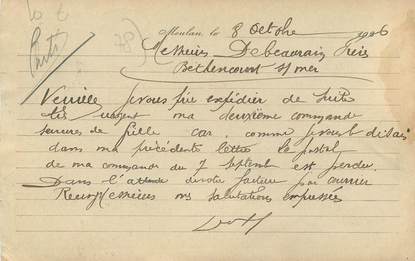 Moulan le 8 Octobre 1906
Messieurs Debeaurain Frères
Béthencourt s/mer
Veuillez je vous prie expédier de suite
très urgent ma deuxième commande
serrures de grille car comme je vous le disais
dans ma précédente lettre le postal
de ma commande du 7 Septembre est perdu.
Dans l'attente de votre facture par courrier
Recevez Messieurs mes salutations empressées